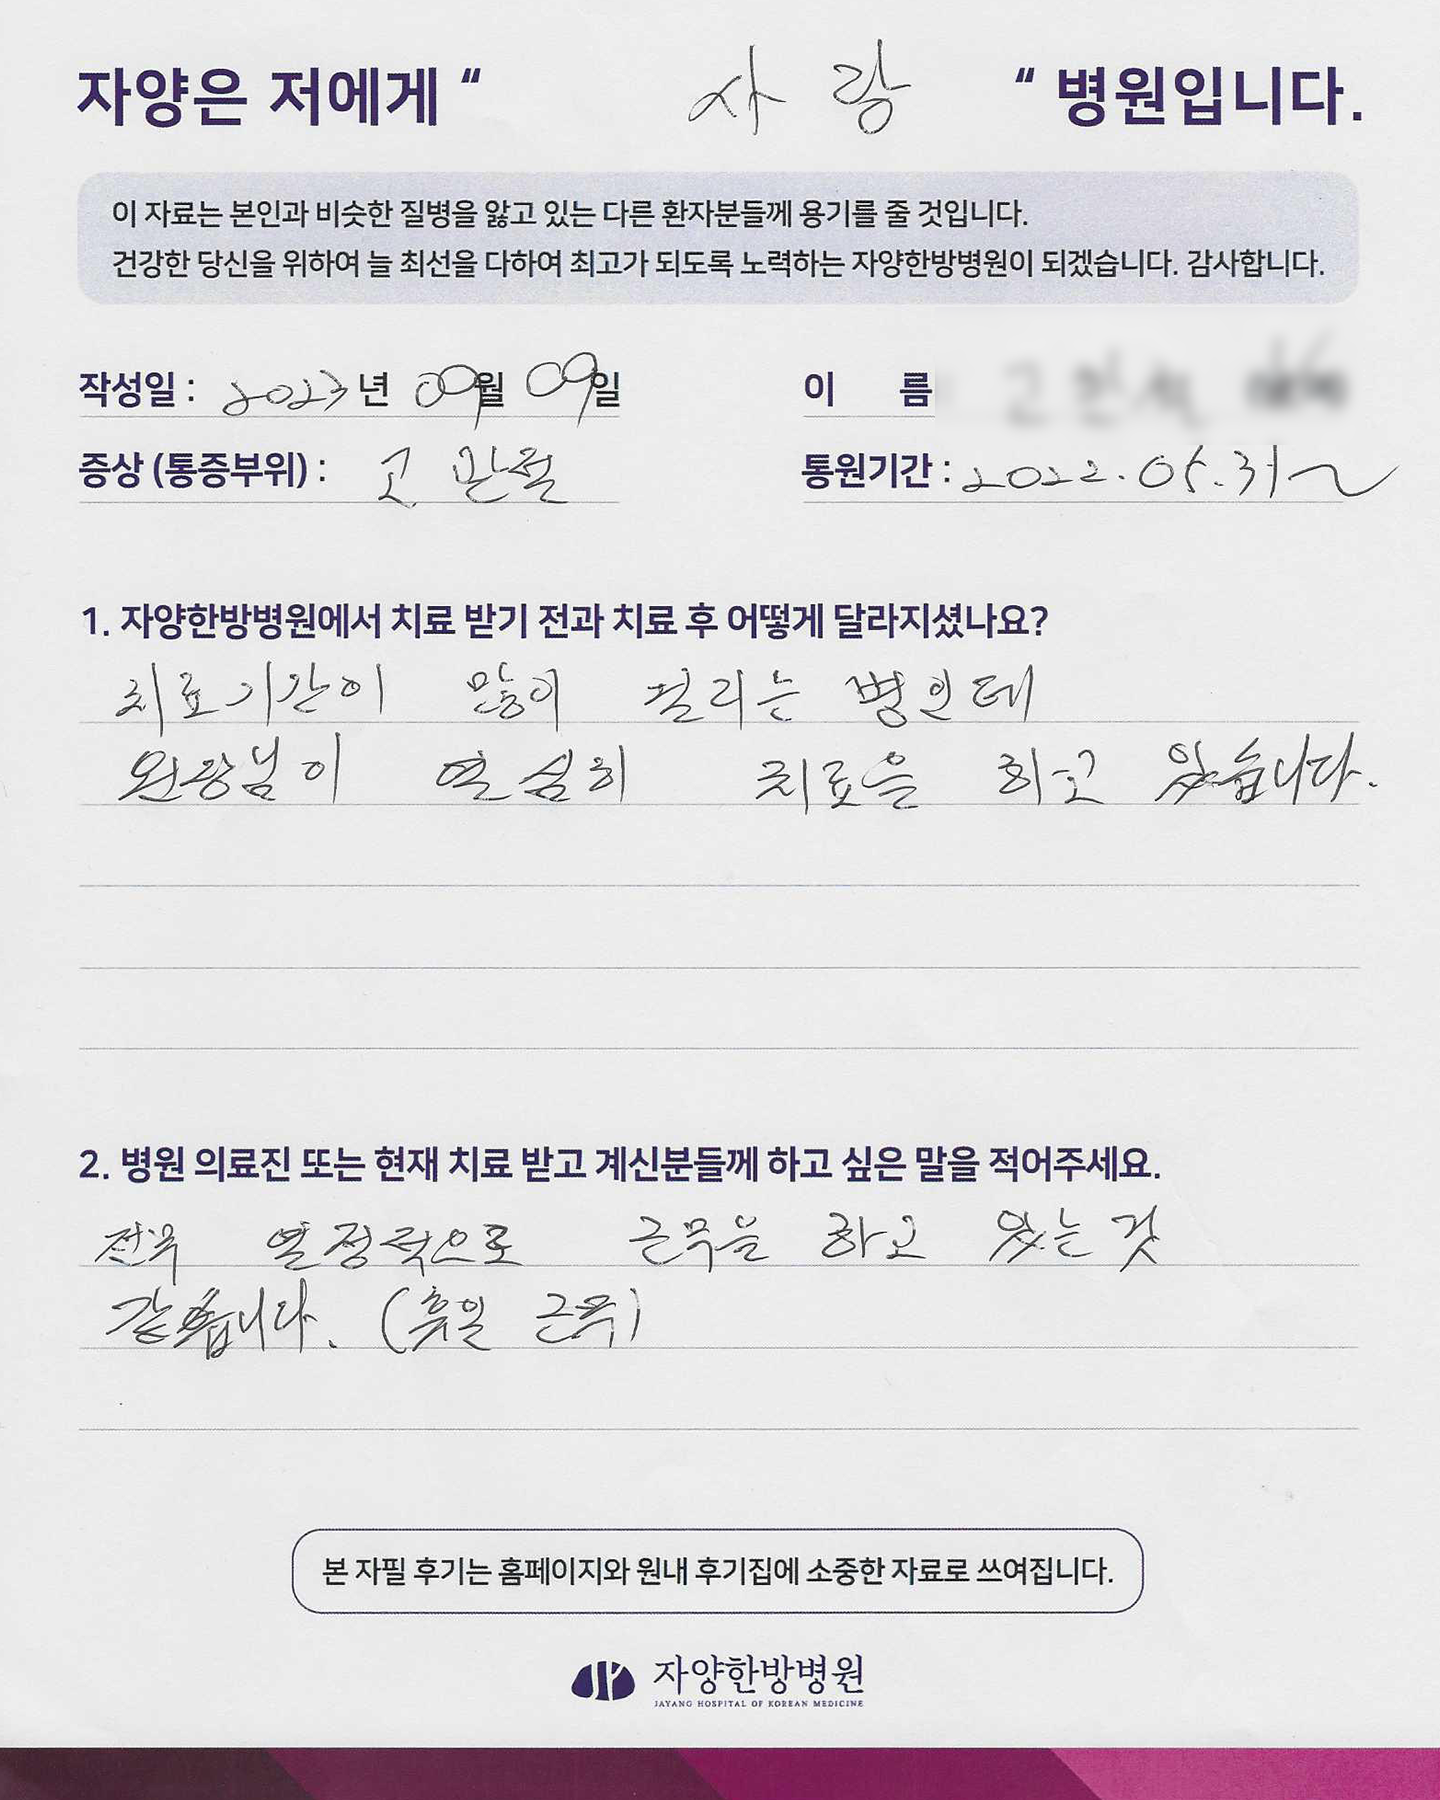 자양은 저에게 “ 사랑 “ 병원입니다.
이 자료는 본인과 비슷한 질병을 앓고 있는 다른 환자분들께 용기를 줄 것입니다.
건강한 당신을 위하여 늘 최선을 다하여 최고가 되도록 노력하는 자양한방병원이 되겠습니다. 감사합니다.
작성일 : 2023년 09월 09일 이 름
증상 (통증부위) : 고관절 통원기간 : 2022. 05. 31~
1. 자양한방병원에서 치료 받기 전과 치료 후 어떻게 달라지셨나요?
치료기간이 많이 걸리는 병인데
원장님이 열심히 치료을 하고 있습니다.
2. 병원 의료진 또는 현재 치료 받고 계신분들께 하고 싶은 말을 적어주세요.
전부 열정적으로 근무을 하고 있는 것
같습니다. (휴일 근무)
본 자필 후기는 홈페이지와 원내 후기집에 소중한 자료로 쓰여집니다.
자양한방병원
JAYANG HOSPITAL OF KOREAN MEDICINE